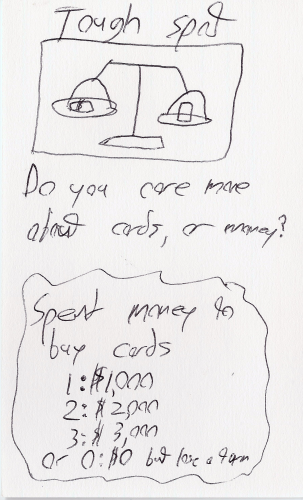 Tough spot
Do you care more
about cards, or money?
Spent money to
buy cards
1: $1,000
2: $2,000
3: $3,000
or 0: $0 but lose a turn